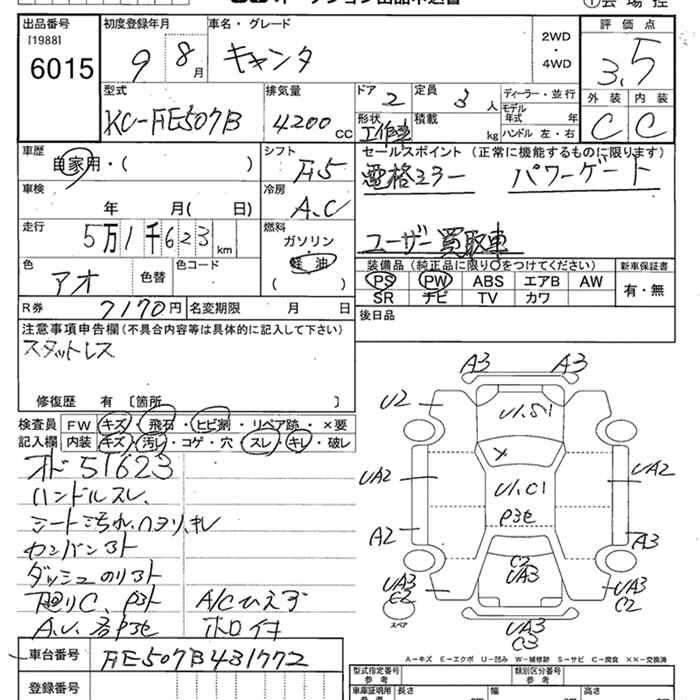 出品番号 初度登録年月 車名・グレード 評価点
[1988] 2WD
6015 9 8月 キャンタ ・ 3.5
4WD
型式 排気量 ドア 2 定員 3人 ディーラー・並行 外装 内装
KC-FE507B 4200cc 形状 工作車 積載 kg モデル年式 年 C C
ハンドル 左・右
車歴 シフト セールスポイント (正常に機能するものに限ります)
自家用・( ) F5 電格ミラー パワーゲート
車検 冷房
年 月( 日) A.C
走行 燃料 ユーザー買取車
5万1千623km ガソリン
軽油
( )
色 色替 色コード 装備品 (純正品に限り○をつけてください) 新車保証書
アオ PS PW ABS エアB AW 有・無
SR ナビ TV カワ
R券 7170円 名変期限 月 日 後日品
注意事項申告欄(不具合内容等は具体的に記入して下さい)
スタットレス
修復歴 有 〔箇所 〕
検査員 FW キズ・飛石・ヒビ割・リペア跡・×要
記入欄 内装 キズ・汚れ・コゲ・穴・スレ・キレ・破レ
オド51623
ハンドルスレ、
シート汚れ、ヘタリ、キレ
カンバンヌト
ダッシュのリヌト
下廻りC、Pヌト A/Cひえず
A.U.各P3セ ホロイキ
A3 A3
U2 U1.S1
UA2 U1.C1 UA2
P3セ
A2 A3
C2
UA3
UA3 UA3
C2 C2
スペア
UA3
C3
A-キズ E-エクボ U-凹み W-補修跡 S-サビ C-腐食 ××-交換済
車台番号 FE507B431772
登録番号
型式指定番号 参考 類別区分番号 参考
車庫証明用 長さ 幅 高さ